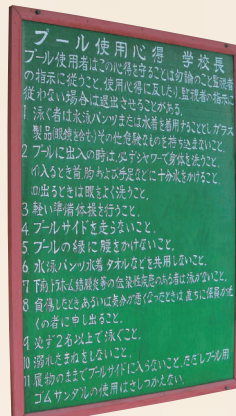 プール使用心得　学校長
プール使用者はこの心得を守ることは勿論のこと監視者
の指示に従うこと。使用心得に反したり、監視者の指示に
従わない場合は退出させることがある。
1 泳ぐ者は水泳パンツまたは水着を着用することとし ガラス
製品(眼鏡を含む)その他危険なものを持ち込まないこと。
2 プールに出入の時は、必ずシャワーで身体を洗うこと。
(イ)入るとき首、胸および手足などに十分水をかけること。
(ロ)出るときは眼をよく洗うこと。
3 軽い準備体操を行うこと。
4 プールサイドを走らないこと。
5 プールの縁に腰をかけないこと。
6 水泳パンツ、水着 タオルなどを共用しないこと。
7 下痢、トラホーム、結膜炎等の伝染性疾患のある者は泳がないこと。
8 負傷したときあるいは気分が悪くなったときは 直ちに係員の近
くの者に申し出ること。
9 必ず2名以上で泳ぐこと。
10 溺れたまねをしないこと。
11 履物のままでプールサイドに入らないこと。ただしプール用
ゴムサンダルの使用はさしつかえない。